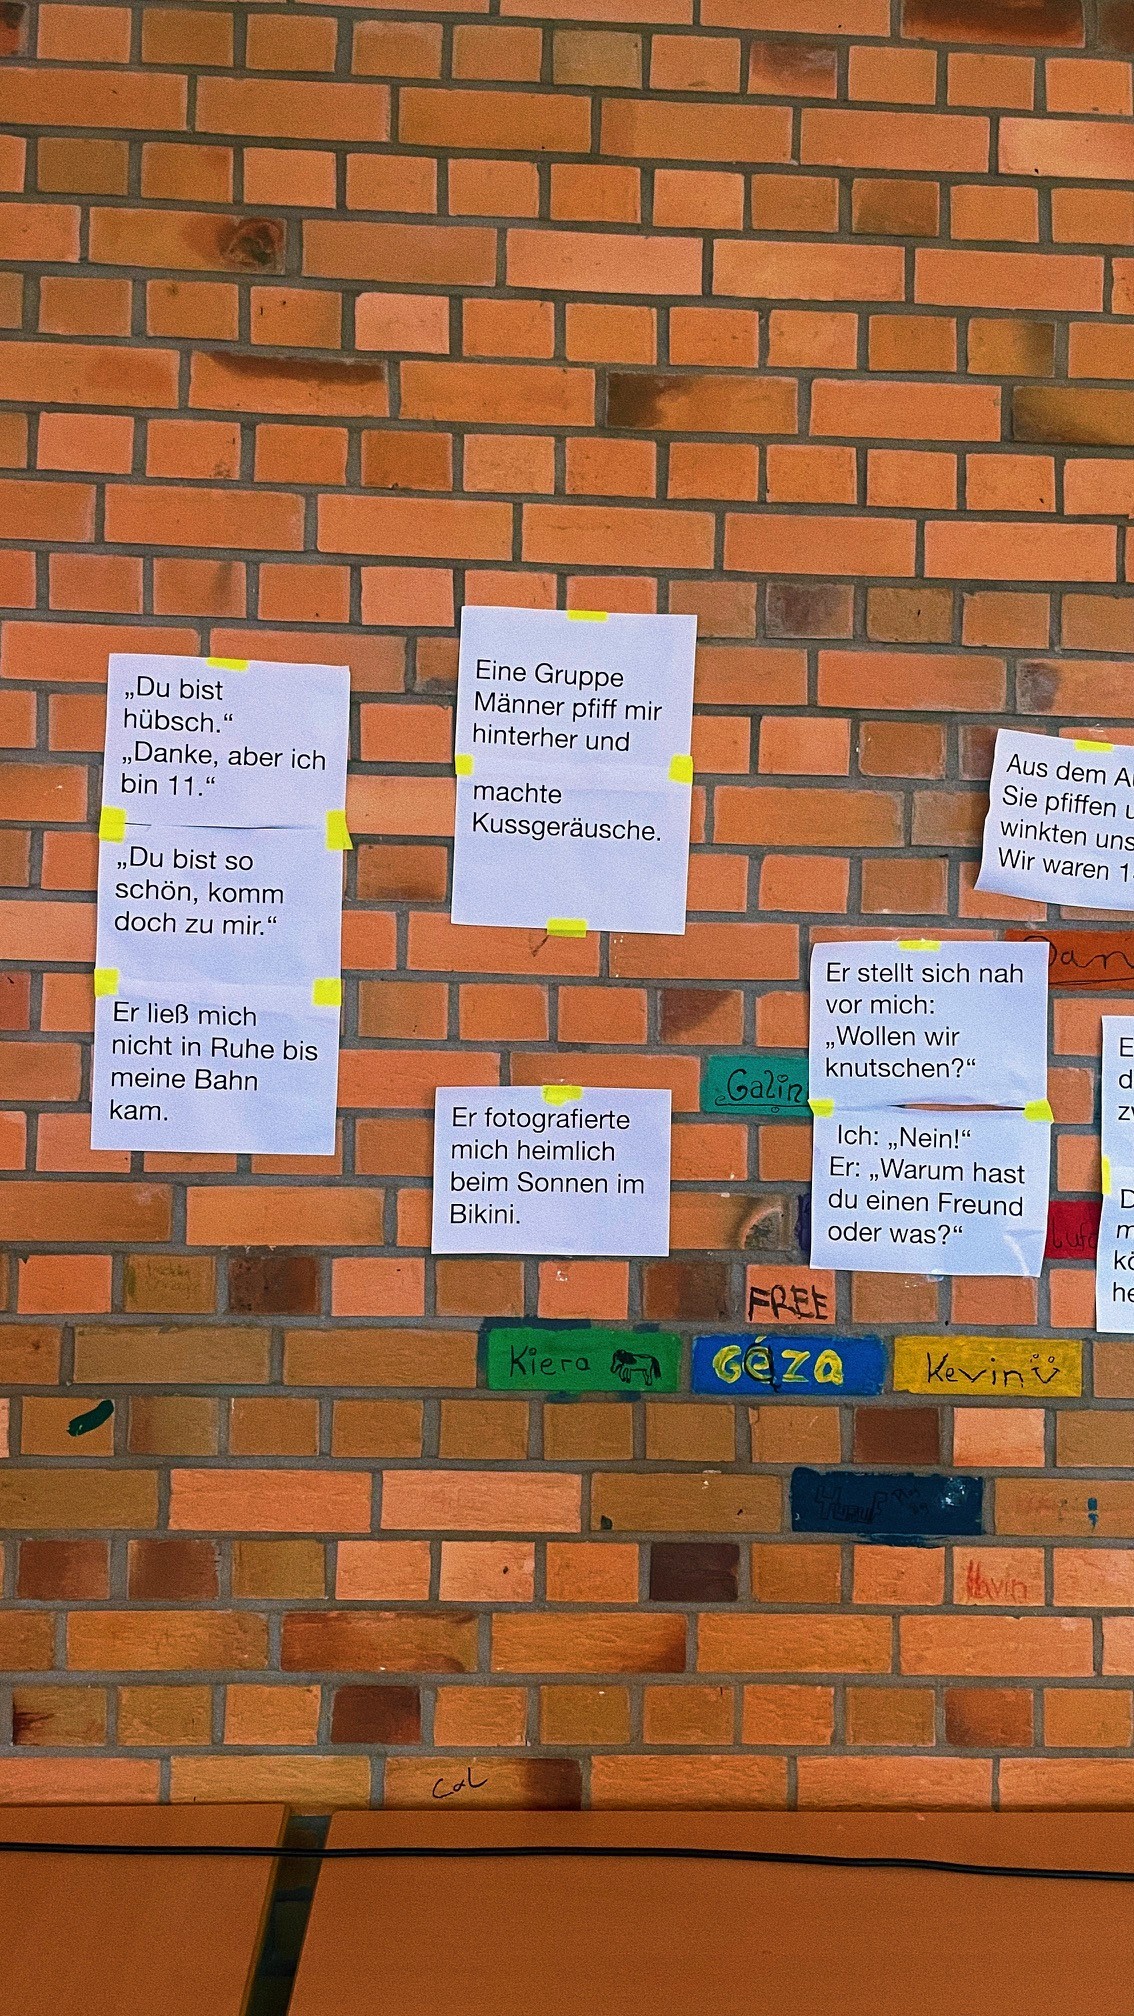 „Du bist
hübsch.“
„Danke, aber ich
bin 11.“
„Du bist so
schön, komm
doch zu mir.“
Er ließ mich
nicht in Ruhe bis
meine Bahn
kam.
Eine Gruppe
Männer pfiff mir
hinterher und
machte
Kussgeräusche.
Er fotografierte
mich heimlich
beim Sonnen im
Bikini.
Aus dem
Sie pfiffen
winkten uns
Wir waren
Er stellt sich nah
vor mich:
„Wollen wir
knutschen?“
Ich: „Nein!“
Er: „Warum hast
du einen Freund
oder was?“
Galin
FREE
Kiera
Géza
Kevin